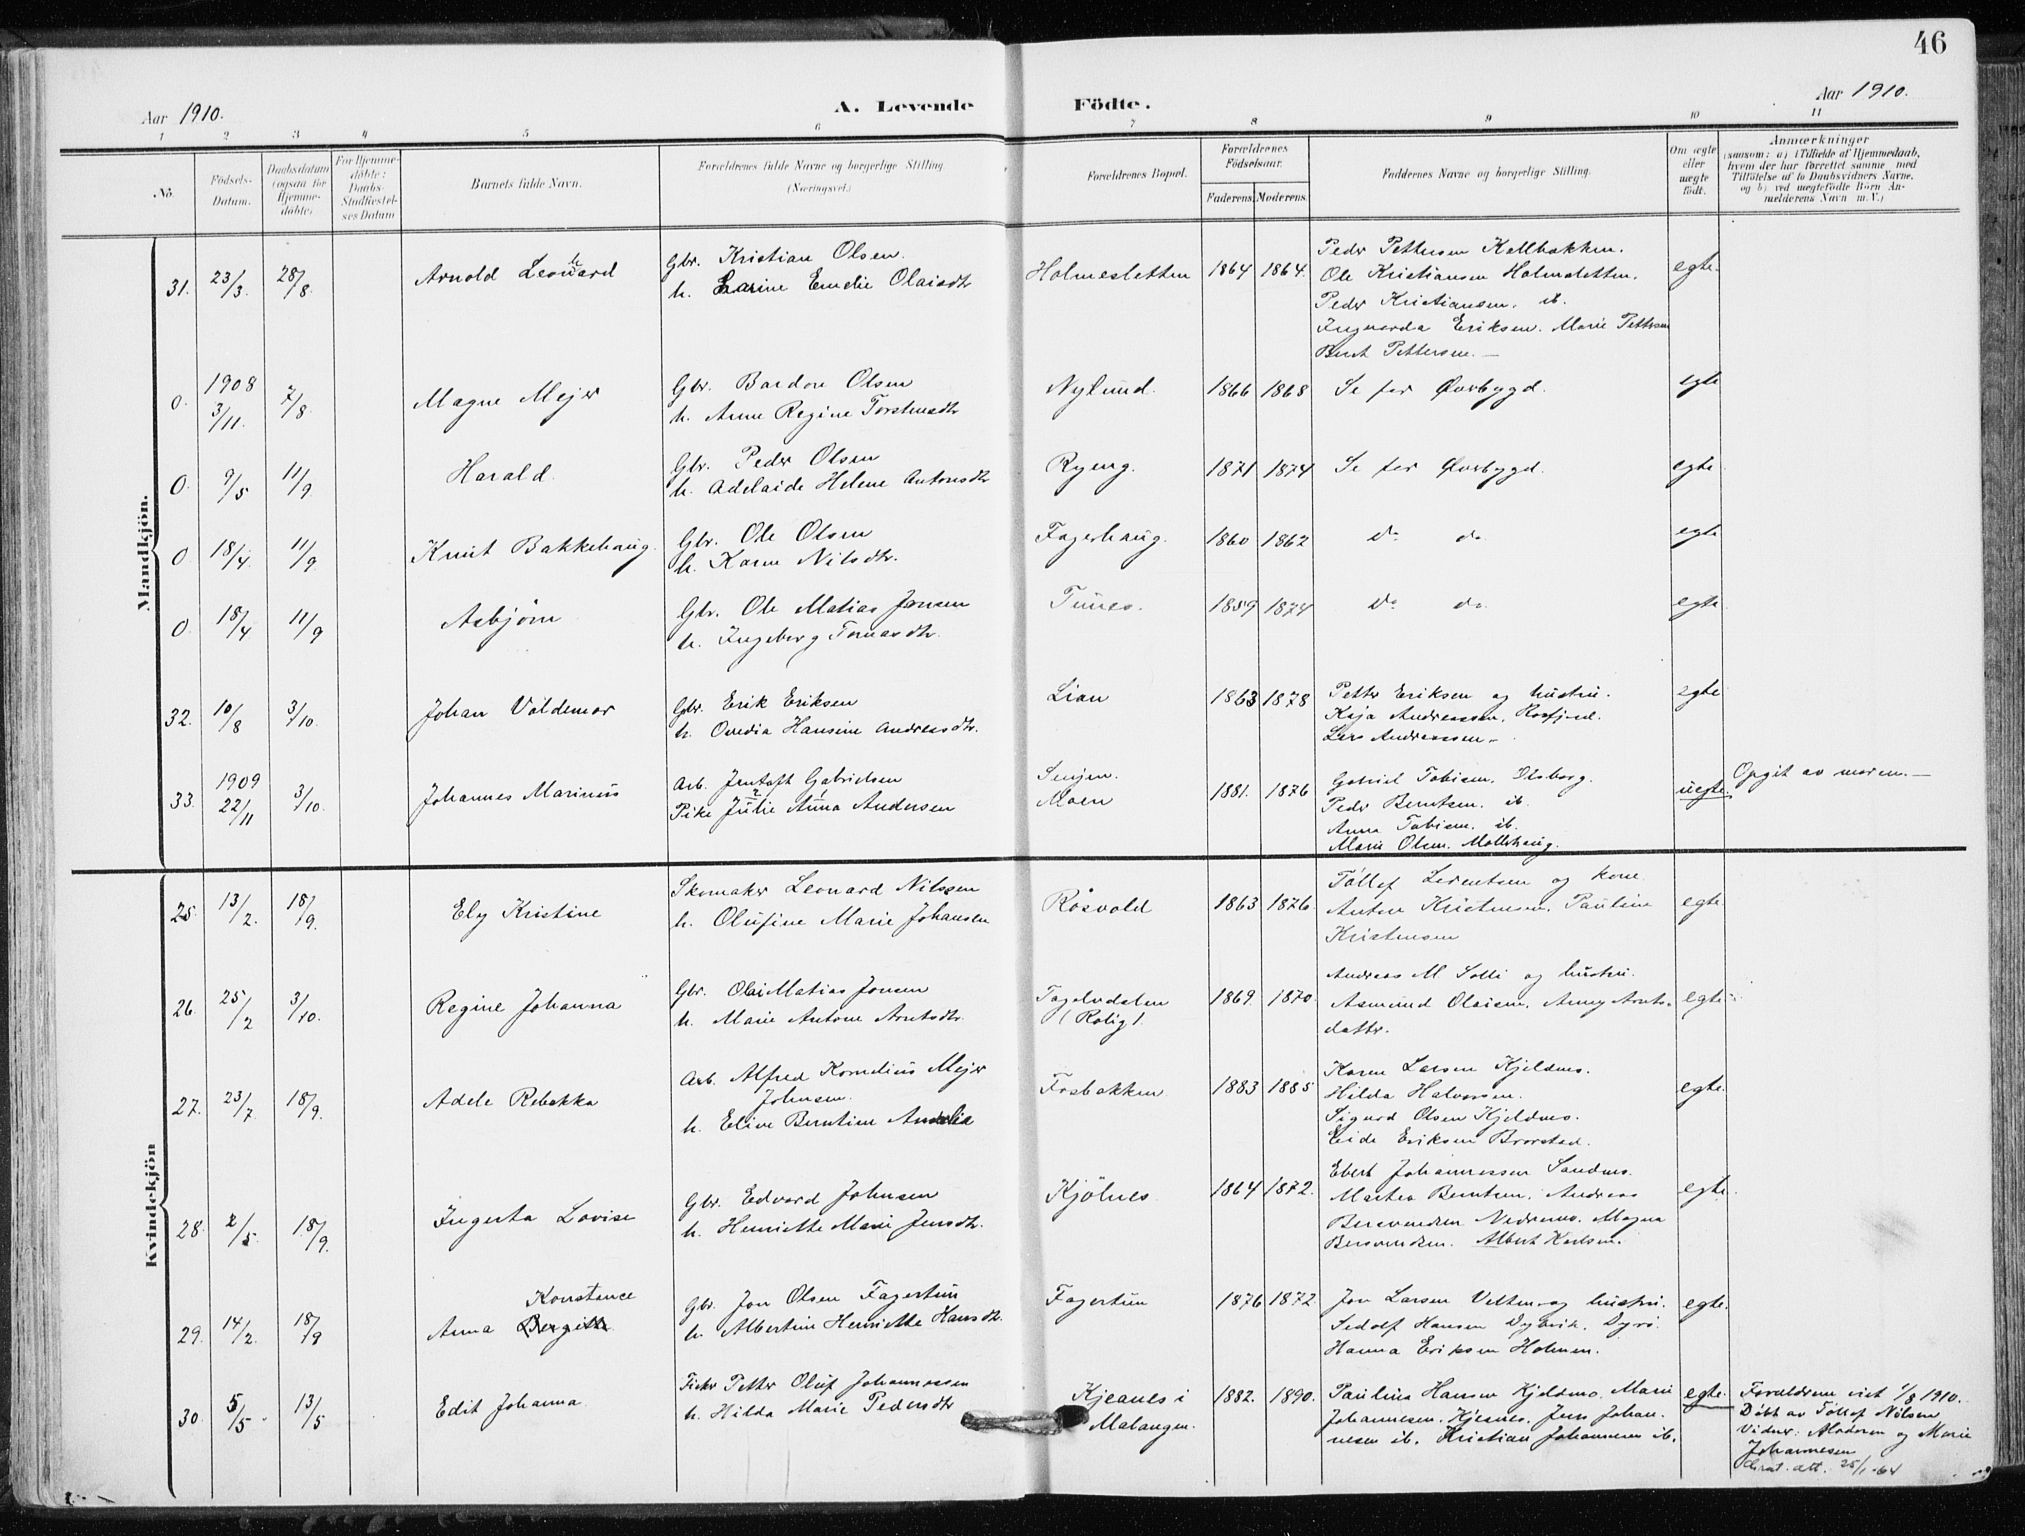 46
Aar 1910.
A. Levende Födte.
Aar 1910.
1 2 3 4 5 6 7 8 9 10 11
No.
Födsels-Datum.
Daabsdatum (ogsaa for Hjemme-döbte)
For Hjemme-döbte: Daabs-Stadfæstel-ses Datum
Barnets fulde Navn.
Forældrenes fulde Navne og borgerlige Stilling.
(Næringsvei.)
Forældrenes Bopæl.
Forældrenes Födselsaar.
Faderens. Moderens.
Faddernes Navne og borgerlige Stilling.
Om ægte eller uægte födt.
Anmærkninger
(saasom: a) i Tilfælde af Hjemmedaab,
hvem der har forrettet samme, med
Tilföielse af to Daabsvidners Navne.
og b) ved uægtefödte Börn An-
melderens Navn m. V.)
Mandkjön.
31. 23/3. 28/8. Arnold Leonhard
Gbr. Kristian Olsen.
h. Larine Emelie Olaisdtr
Holmesletten 1864 1864.
Peder Pettersen Kallbakken.
Ole Kristiansen Holmsletten.
Peder Kristiansen. ib.
Ingvarda Eriksen. Marie Pettersen
Berit Pettersen. —
egte.
0. 1908 3/11. 7/8. Magne Mejer
Gbr. Bardon Olsen
h. Anne Regine Torstensdtr
Nylund. 1866 1868 Se for Øverbygd. egte
0. 9/5 11/9 Harald.
Gbr. Peder Olsen
h. Adelaide Helene Antonsdtr
Ryeng. 1871 1874 Se for Øverbygd. egte
0 18/4 11/9 Knut Bakkehaug.
Gbr. Ole Olsen
h. Karen Nilsdtr.
Fagerhaug. 1860 1862 do do egte
0 18/4 11/9 Asbjørn
Gbr. Ole Matias Jensen
h. Ingeborg Tomasdtr.
Tunes. 1859 1874 do do egte
32. 10/8 3/10. Johan Valdemar
Gbr. Erik Eriksen
h. Ovedia Hansine Andreasdtr.
Lian 1863 1878
Petter Eriksen og hustru.
Kaja Andreassen, Rosfjord.
Lars Andreassen. -
egte
33. 1909 22/11 3/10. Johannes Marinius
Arb. Jentoft Gabrielsen
Pike Julie Anna Andersen
Senjen.
Moen
1881. 1876
Gabriel Tobisen. Olsborg.
Peder Berntsen. ib.
Anna Tobisen. ib.
Marie Olsen. Mollehaug.
uegte.
Opgit av moren. —
Kvindekjön
25. 13/2. 18/9. Ely Kristine
Skomaker Leonard Nilssen
h. Olufine Marie Johansen
Rösvold 1863 1876.
Tollef Lorentsen og kone
Anton Kristensen. Pauline
Kristensen
egte.
26. 25/2 3/10. Regine Johanna
Gbr. Olai Matias Jensen
h. Marie Antone Arntsdtr.
Fagelvdalen
(Rolig).
1869. 1870.
Andreas M Solli og hustru.
Asmund Olaisen, Anny Arnts-
datter.
egte.
27. 23/7 18/9. Adele Rebekka
Arb. Alfred Kornelius Mejer
Johnsen.
h. Eline Berntine Amalia
Fosbakken 1883 1885
Karen Larsen Kjeldmo.
Hilda Halvorsen.
Sigurd Olsen Kjeldmo.
Eide Eriksen Brorstad.
egte.
28. 2/5. 18/9. Ingerta Lovise
Gbr. Edvard Johnsen
h. Henriette Marie Jensdtr.
Kjölnes. 1864 1872.
Ebert Johannessen Sandmo.
Martea Berntsen, Andreas
Bersvendsen Nedremo. Magna
Bersvendsen. Albert Karlsen.
egte.
29. 14/2. 18/9 Konstance
Anna Bergitte
Gbr. Jon Olsen Fagertun
h. Albertine Henriette Hansdtr.
Fagertun 1876 1872.
Jon Larsen Velten og hustru.
Sedolf Hansen Dyrvik. Dyrö.
Hanna Eriksen Holmen.
egte.
30. 5/5. 13/5 Edit Johanna.
Fisker Petter Oluf Johannessen
h. Hilda Marie Pedersdtr
Kjeanes i
Malangen.
1882. 1890.
Paulina Hansen Kjeldmo. Marie
Johannesen. Kjeanes. Jens Johan-
nesen ib. Kristian Johannesen ib.
egte.
Forældrene viet 1/8 1910.
Döbt av Tollef Nilsen
Vidner: Moderen og Marie
Johannesen
Grat. att. 25/1-64